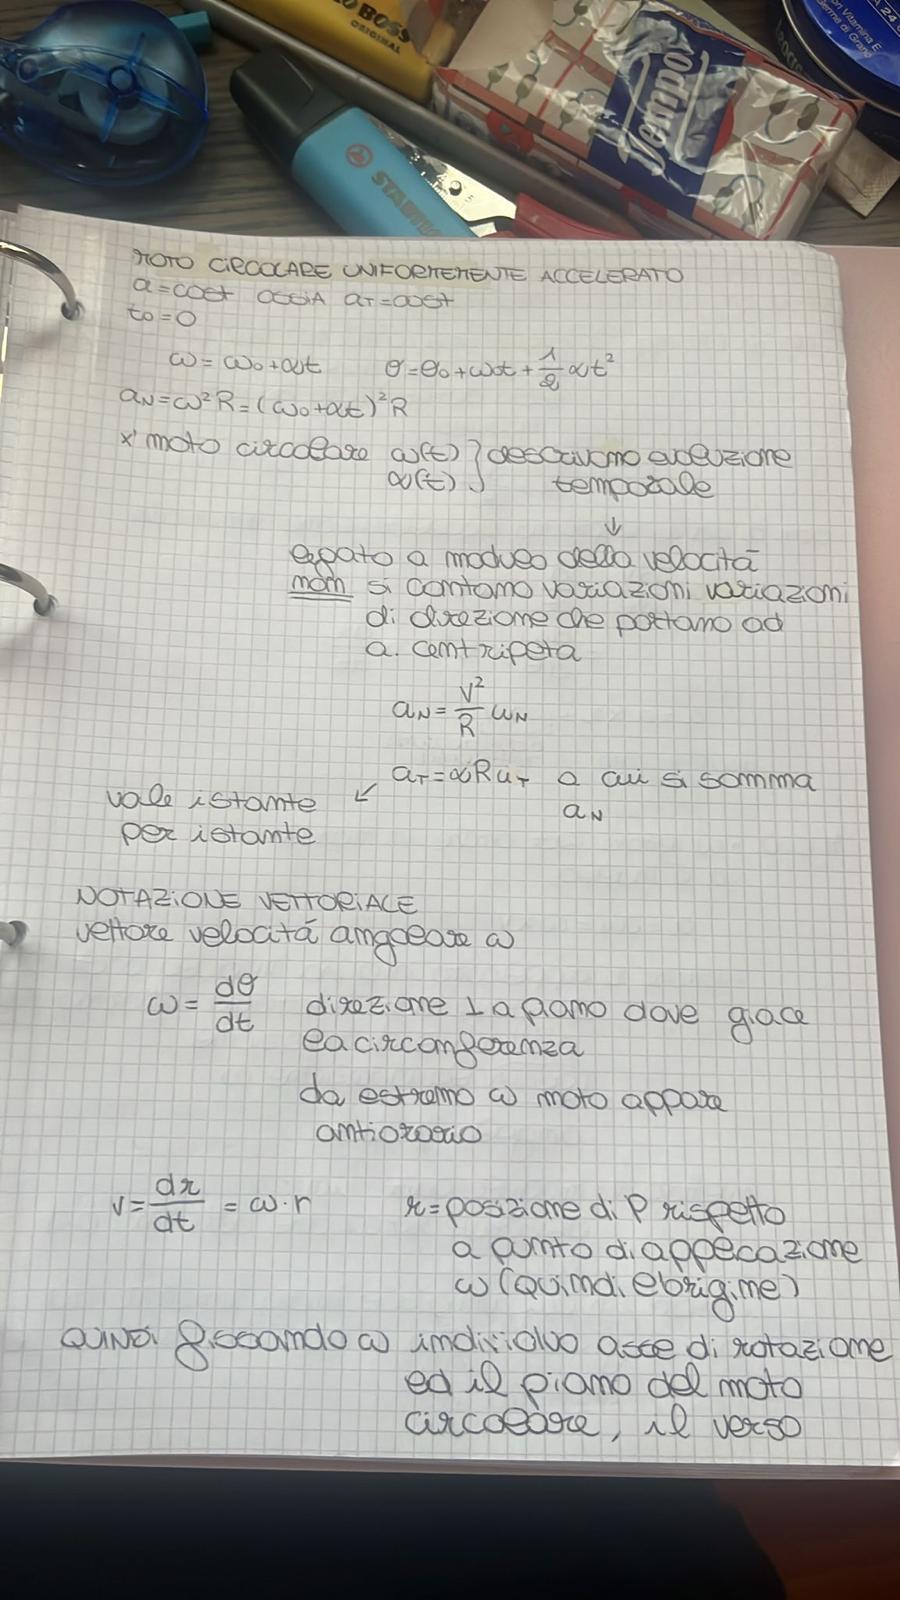 BOSS
ORIGINAL
STABILO
Tempo
24
on Vitamina E
Germe di Grano
MOTO CIRCOLARE UNIFORMEMENTE ACCELERATO
a=cost OSSIA aT=cost
t0=0
ω=ω0+αt θ=θ0+ωot+1/2 αt²
aN=ω²R=(ω0+αt)²R
x' moto circolare ω(t) } descrivono evoluzione
α(t) temporale
↓
legato a modulo della velocità
non si contano variazioni variazioni
di direzione che portano ad
a. centripeta
aN=V²/R uN
aT=αRuT a cui si somma
aN
vale istante ↙
per istante
NOTAZIONE VETTORIALE
vettore velocità angolare ω
ω=dθ/dt direzione ⊥ a piano dove giace
la circonferenza
da estremo ω moto appare
antiorario
v=dr/dt=ω·r r=posizione di P rispetto
a punto di applicazione
ω (quindi l'origine)
QUINDI fissando ω individuo asse di rotazione
ed il piano del moto
circolare, il verso